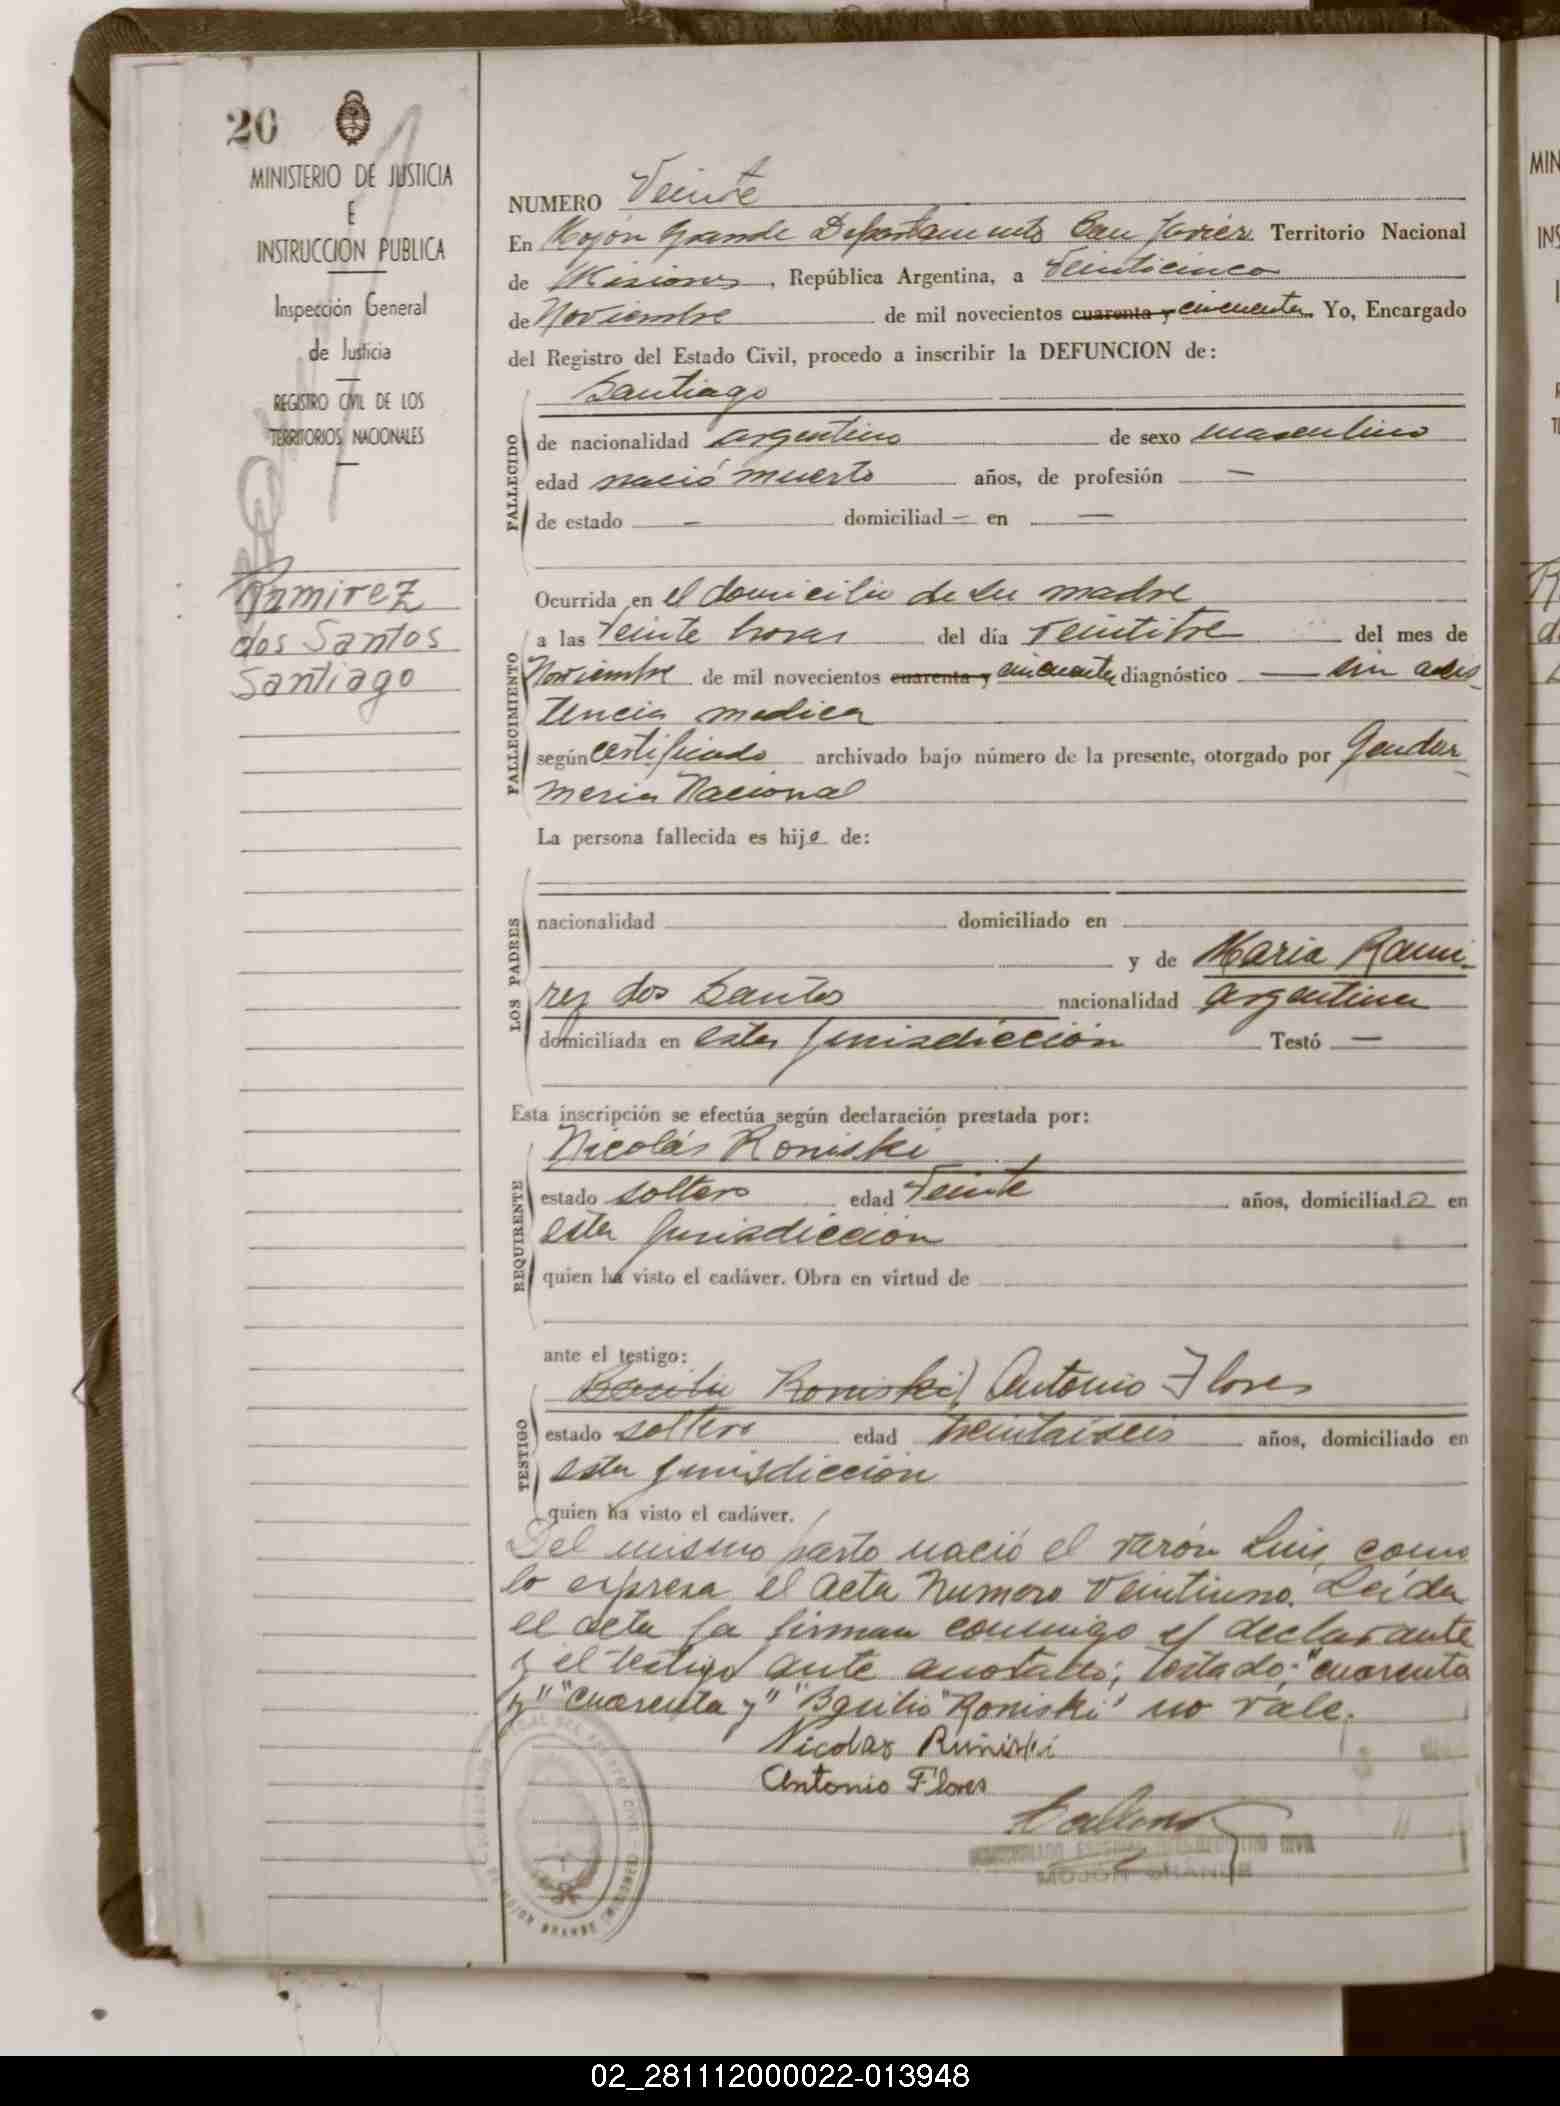 20
MINISTERIO DE JUSTICIA
E
INSTRUCCION PUBLICA
Inspección General
de Justicia
REGISTRO CIVIL DE LOS
TERRITORIOS NACIONALES
Ramirez
dos Santos
Santiago
NUMERO Veinte
En Mojón Grande Departamento San Javier Territorio Nacional
de Misiones, República Argentina, a Veinticinco
de Noviembre de mil novecientos cuarenta y cincuenta Yo, Encargado
del Registro del Estado Civil, procedo a inscribir la DEFUNCION de:
Santiago
FALLECIDO
de nacionalidad argentino de sexo masculino
edad nació muerto años, de profesión —
de estado — domiciliad — en —
Ocurrida en el domicilio de su madre
FALLECIMIENTO
a las Veinte horas del día Veintitre del mes de
Noviembre de mil novecientos cuarenta y cincuenta diagnóstico — sin asis
tencia medica
según certificado archivado bajo número de la presente, otorgado por Gendar
meria Nacional
La persona fallecida es hijo de:
LOS PADRES
nacionalidad domiciliado en
y de Maria Rami-
rez dos Santos nacionalidad argentina
domiciliada en esta jurisdicción Testó —
Esta inscripción se efectúa según declaración prestada por:
Nicolás Roniski
REQUIRENTE
estado soltero edad Veinte años, domiciliado en
esta jurisdicción
quien ha visto el cadáver. Obra en virtud de
ante el testigo:
Basilio Roniski) Antonio Flores
TESTIGO
estado soltero edad treintaiseis años, domiciliado en
esta jurisdicción
quien ha visto el cadáver.
Del mismo parto nació el varón Luis, como
lo expresa el acta Numero Veintiuno. Leída
el acta la firman conmigo el declarante
y el testigo ante anotado; testado: "cuarenta
y" "cuarenta y" "Basilio Roniski" no vale.
Nicolas Runiski
Antonio Flores
MOJON GRANDE (MISIONES)
02_281112000022-013948